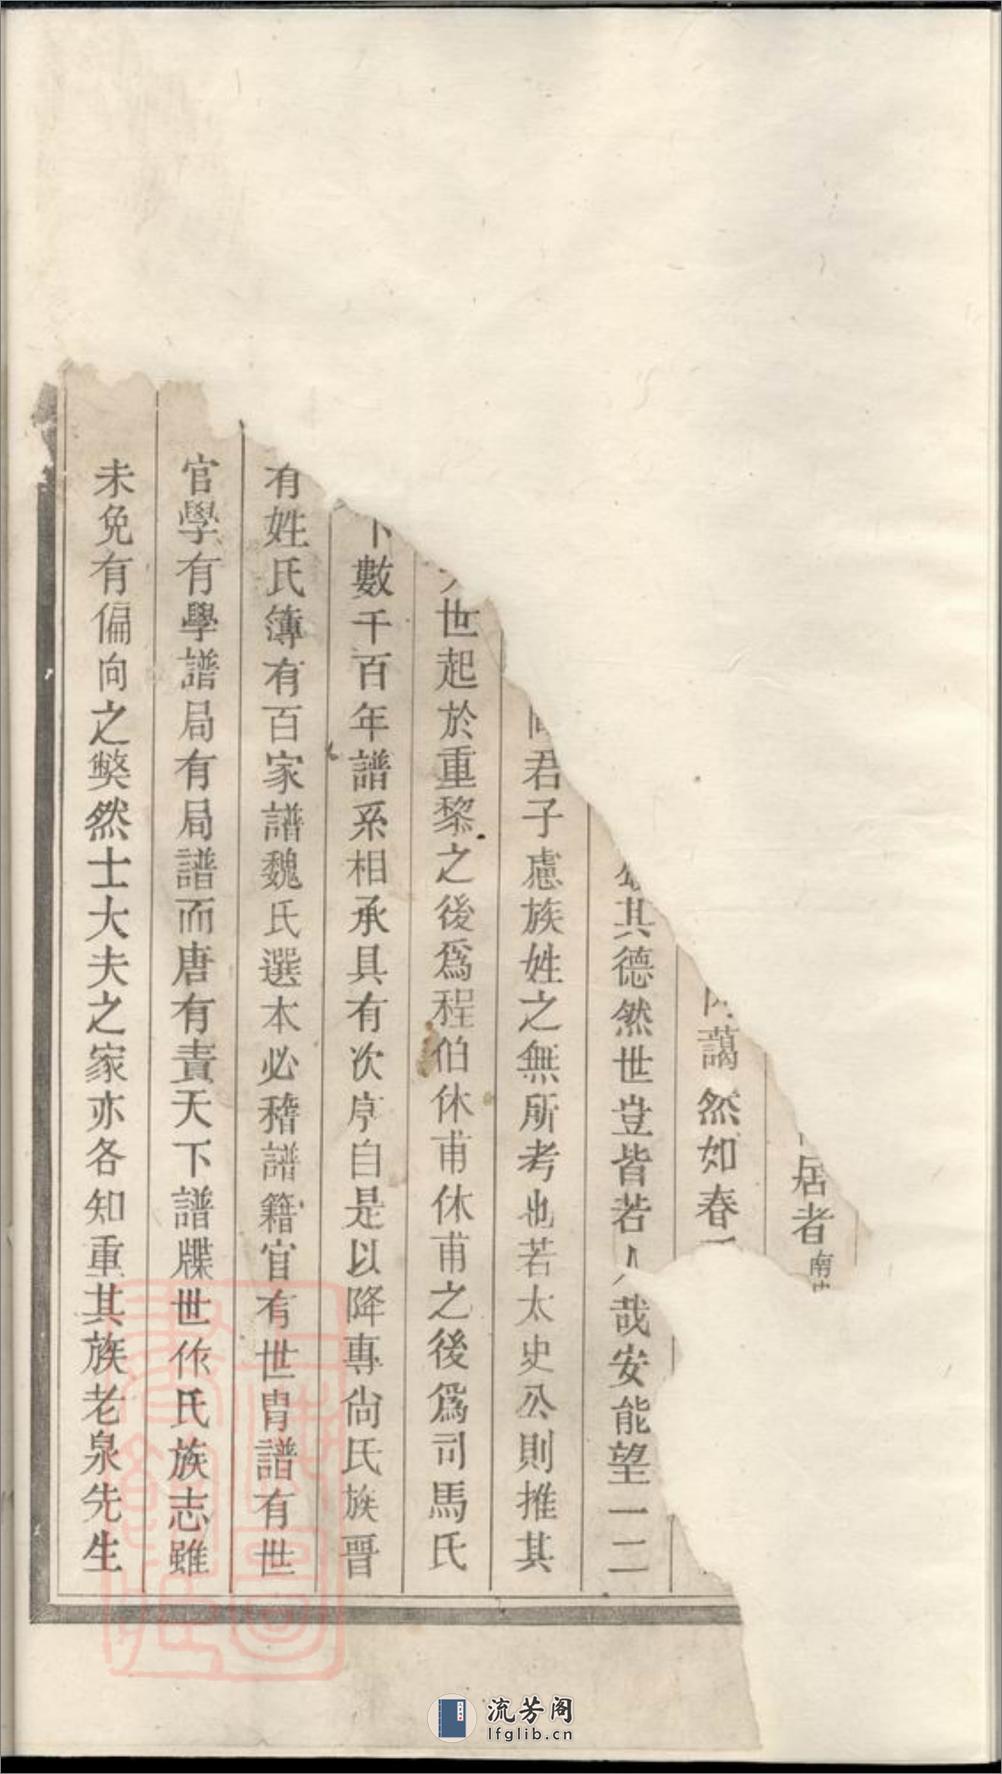 居者南
藹然如春
其德然世豈皆若人哉安能望一二
君子慮族姓之無所考也若太史公則推其
世起於重黎之後爲程伯休甫休甫之後爲司馬氏
下數千百年譜系相承具有次序自是以降專尙氏族晉
有姓氏簿有百家譜魏氏選本必稽譜籍官有世胄譜有世
官學有學譜局有局譜而唐有責天下譜牒世作氏族志雖
未免有偏向之弊然士大夫之家亦各知重其族老泉先生
流芳阁
lfglib.cn